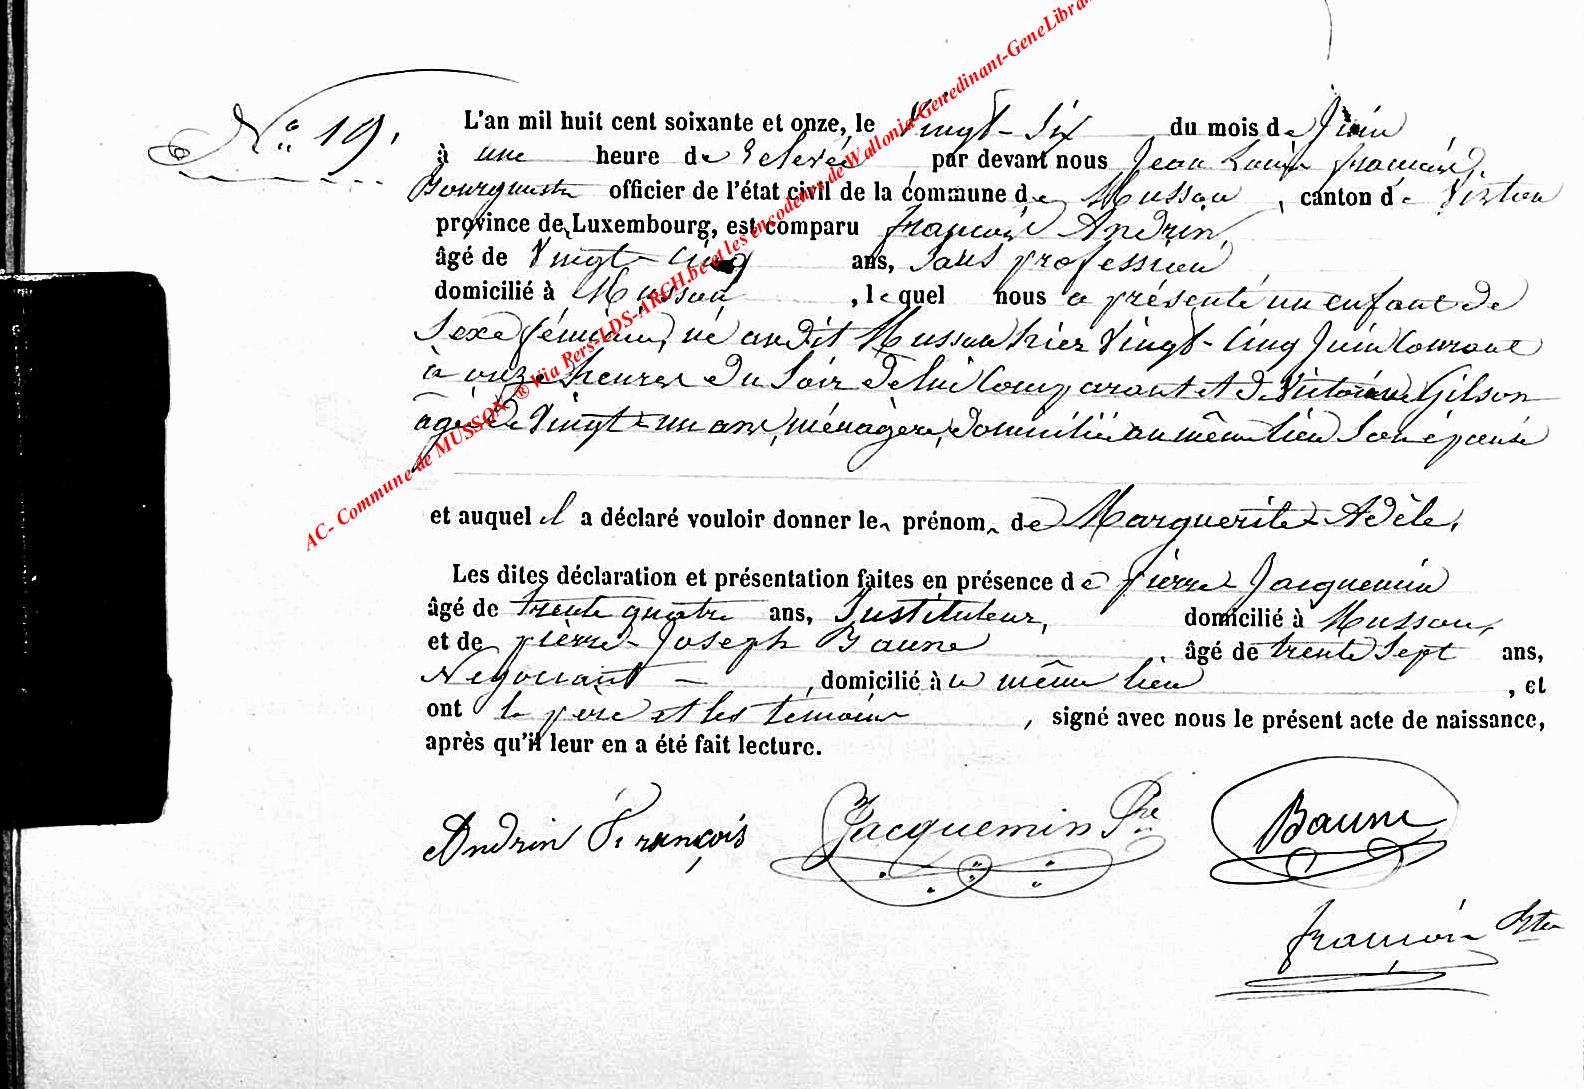 N° 19.
L'an mil huit cent soixante et onze, le Vingt-Six du mois de Juin
à une heure de relevée, par devant nous Jean Louis François,
Bourgmestre officier de l'état civil de la commune de Musson, canton de Virton
province de Luxembourg, est comparu François Andrin,
âgé de Vingt-cinq ans, Sans profession,
domicilié à Musson, lequel nous a présenté un enfant de
Sexe féminin, né audit Musson hier Vingt-Cinq Juin Courant
à onze heures du Soir de lui Comparant et de Victoire Gilson
âgée de Vingt-un ans, ménagère, domiciliée au même lieu Son épouse
et auquel il a déclaré vouloir donner les prénoms de Marguerite-Adèle.
Les dites déclaration et présentation faites en présence de Pierre Jacquemin
âgé de trente quatre ans, Instituteur, domicilié à Musson,
et de Pierre-Joseph Baune âgé de trente Sept ans,
Négociant, domicilié à u même lieu, et
ont le père et les témoins, signé avec nous le présent acte de naissance,
après qu'il leur en a été fait lecture.
Andrin François Jacquemin Pre Baune
François
AC- Commune de MUSSON ® Via Rers-LDS-ARCH.be et les encodeurs de Wallonia-Genedinant-GeneLibra